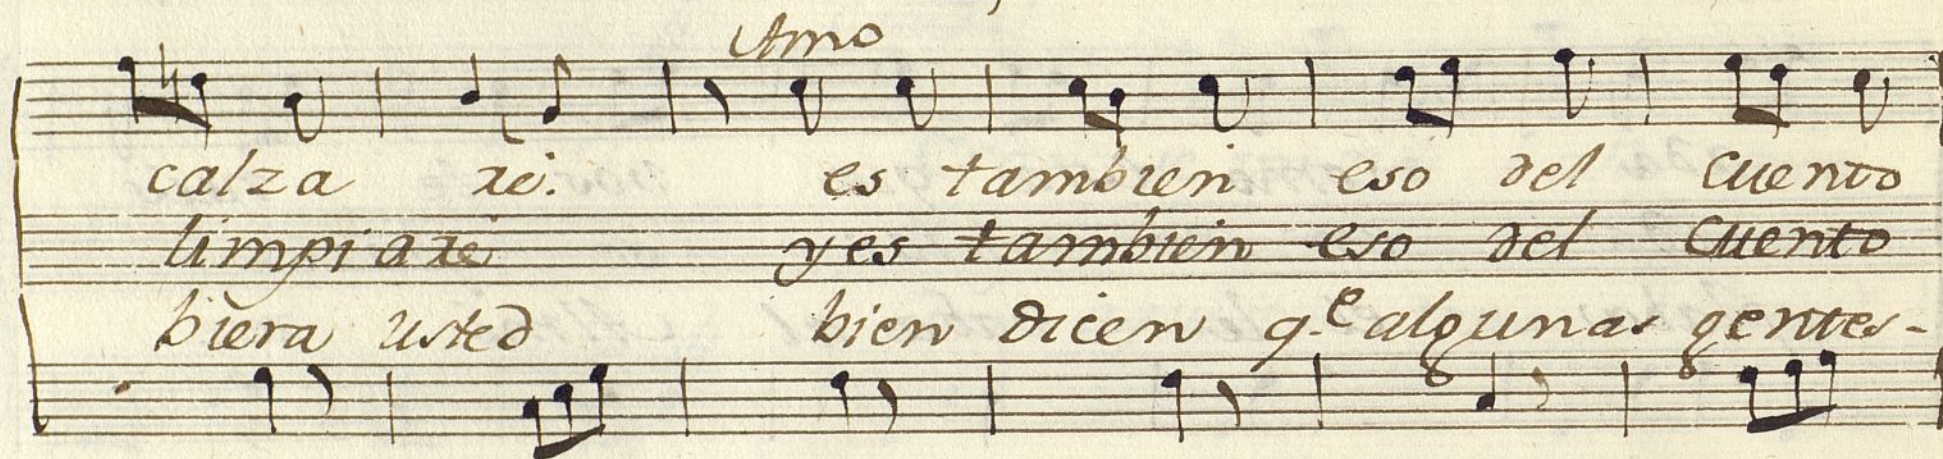 Amo
calza ré. es tambien eso del cuento
limpiaré y es tambien eso del cuento
biera usted bien dicen q.e algunas gentes-